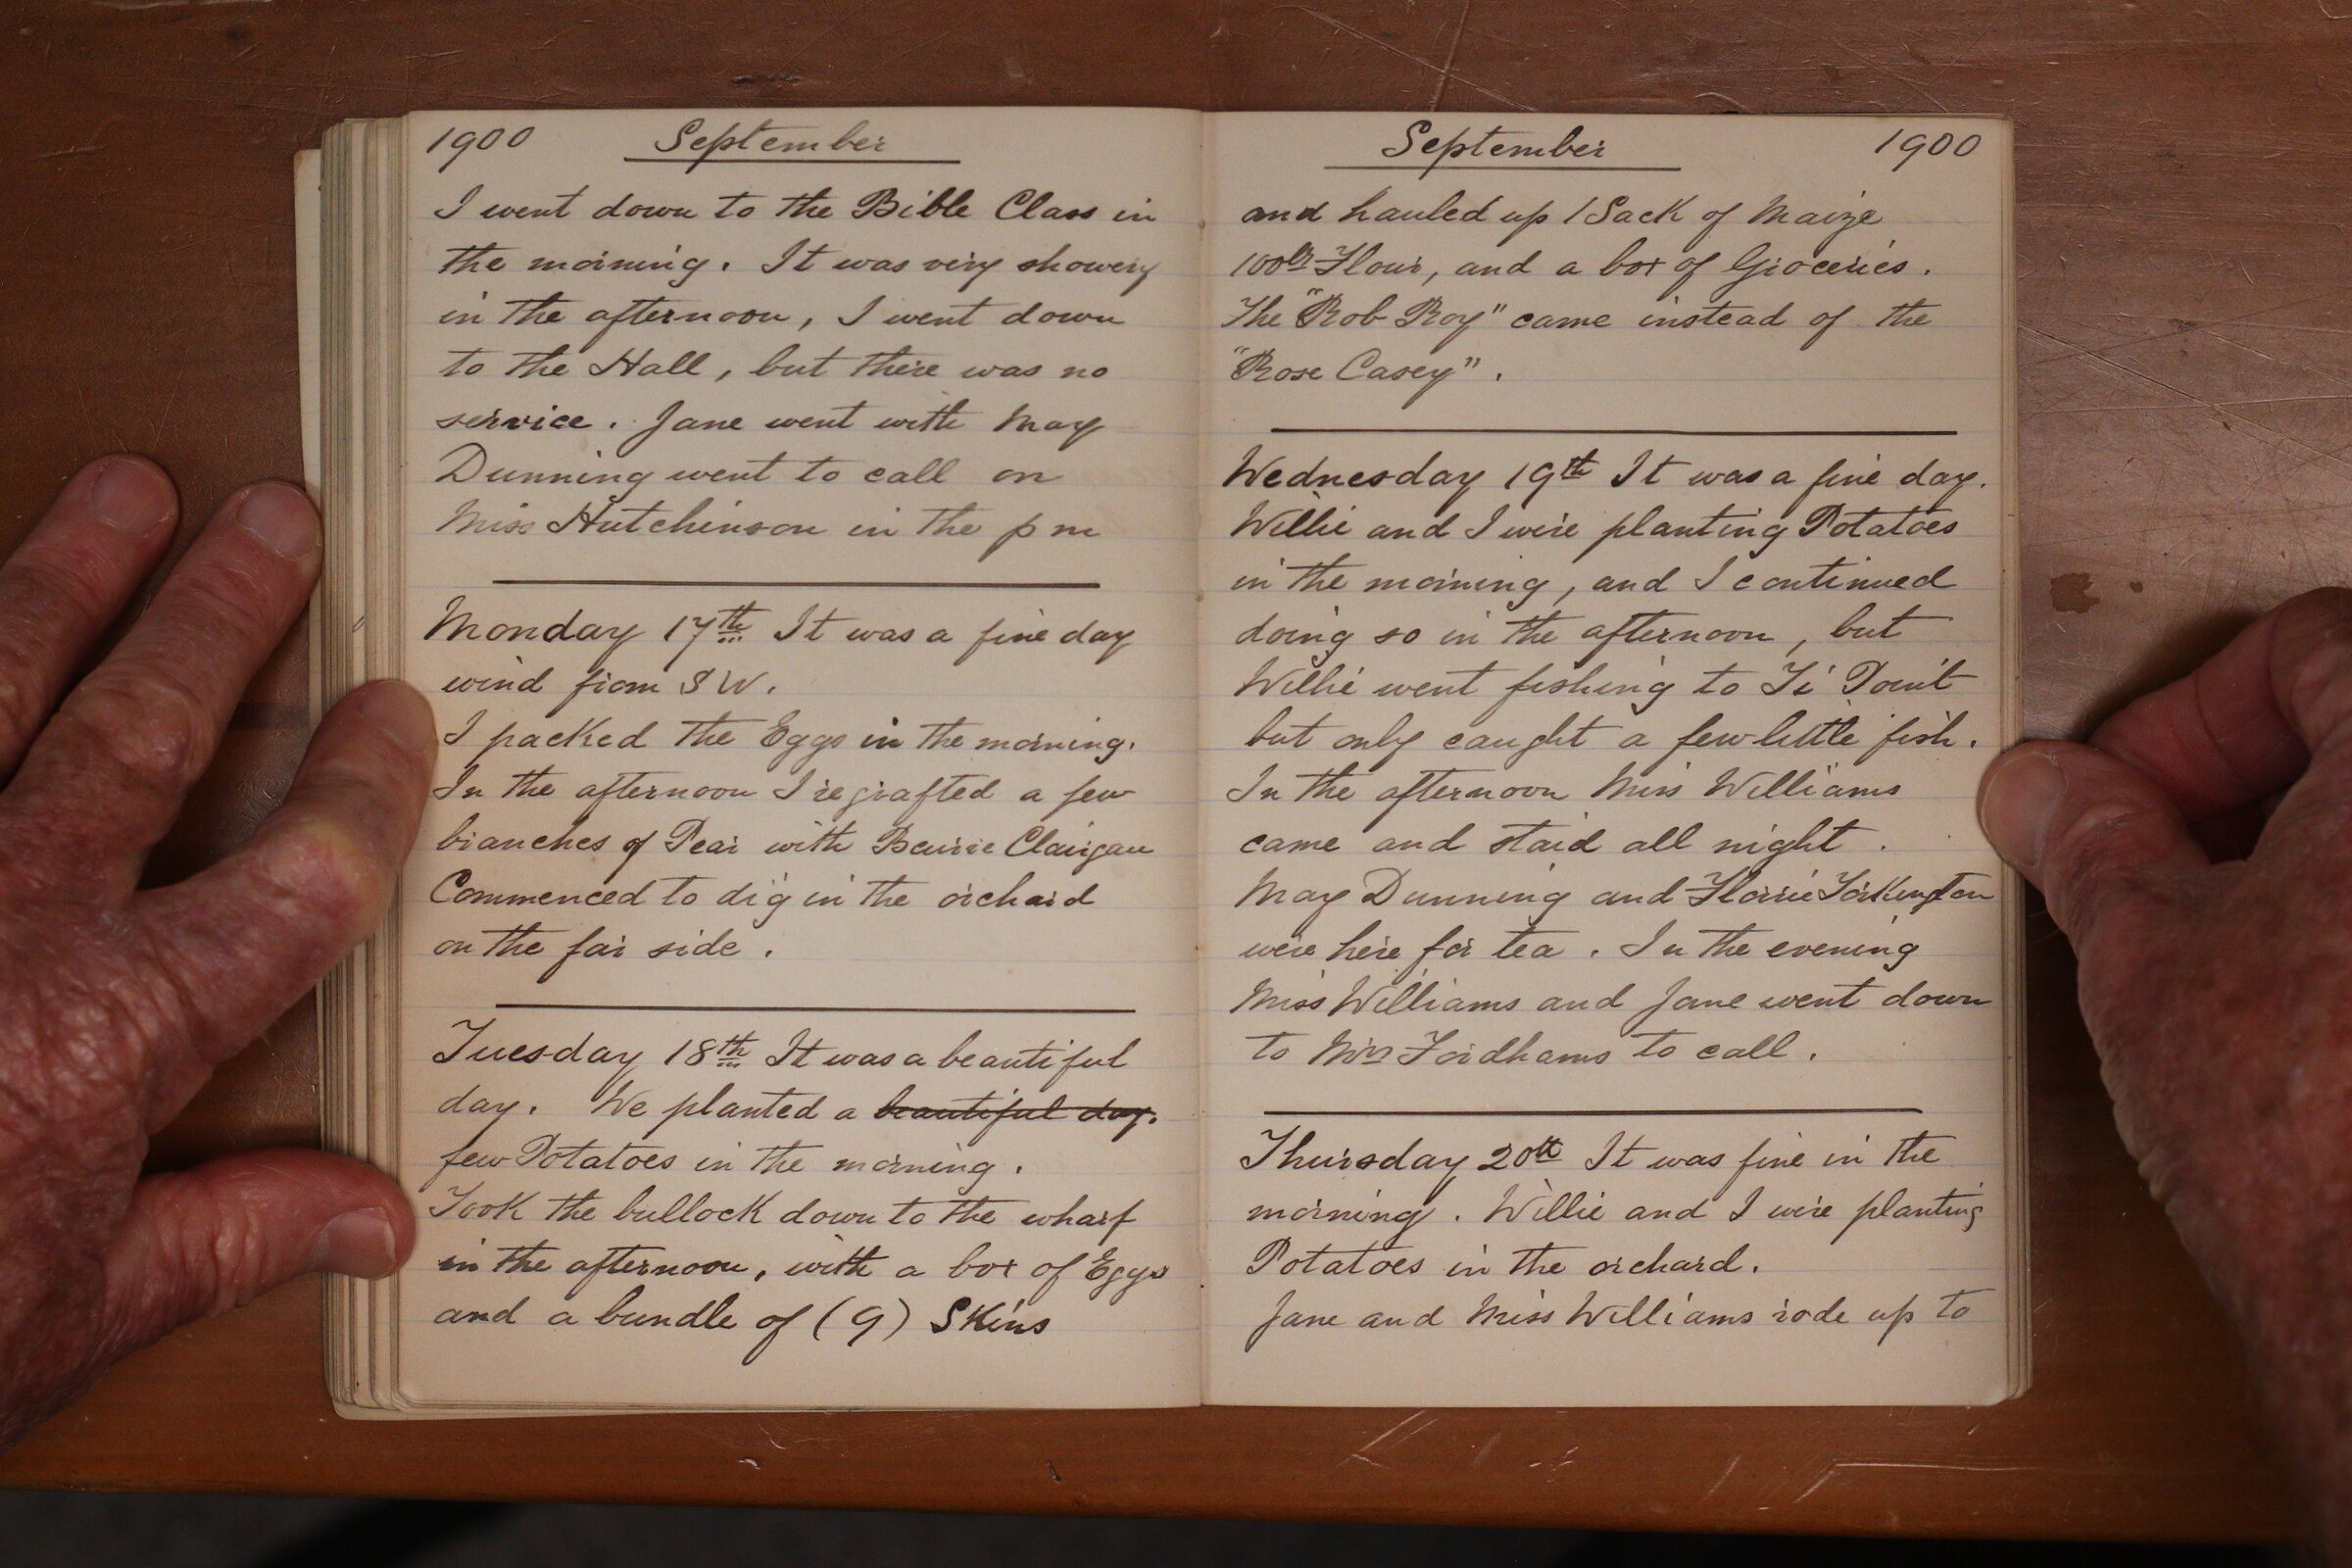 1900 September
I went down to the Bible Class in
the morning. It was very showery
in the afternoon, I went down
to the Hall, but there was no
service. Jane went with May
Dunning went to call on
Miss Hutchinson in the p m
Monday 17th It was a fine day
wind from S W.
I packed the Eggs in the morning.
In the afternoon I regrafted a few
branches of Pear with Beurre Clairgau
Commenced to dig in the orchard
on the far side.
Tuesday 18th It was a beautiful
day. We planted a beautiful day.
few Potatoes in the morning.
Took the bullock down to the wharf
in the afternoon, with a box of Eggs
and a bundle of (9) Skins
September 1900
and hauled up 1 Sack of Maize
100lb Flour, and a box of Groceries.
The "Rob Roy" came instead of the
"Rose Casey".
Wednesday 19th It was a fine day.
Willie and I were planting Potatoes
in the morning, and I continued
doing so in the afternoon, but
Willie went fishing to Ti Point
but only caught a few little fish.
In the afternoon Miss Williams
came and staid all night.
May Dunning and Florrie Torkington
were here for tea. In the evening
Miss Williams and Jane went down
to Mrs Fordhams to call.
Thursday 20th It was fine in the
morning. Willie and I were planting
Potatoes in the orchard.
Jane and Miss Williams rode up to